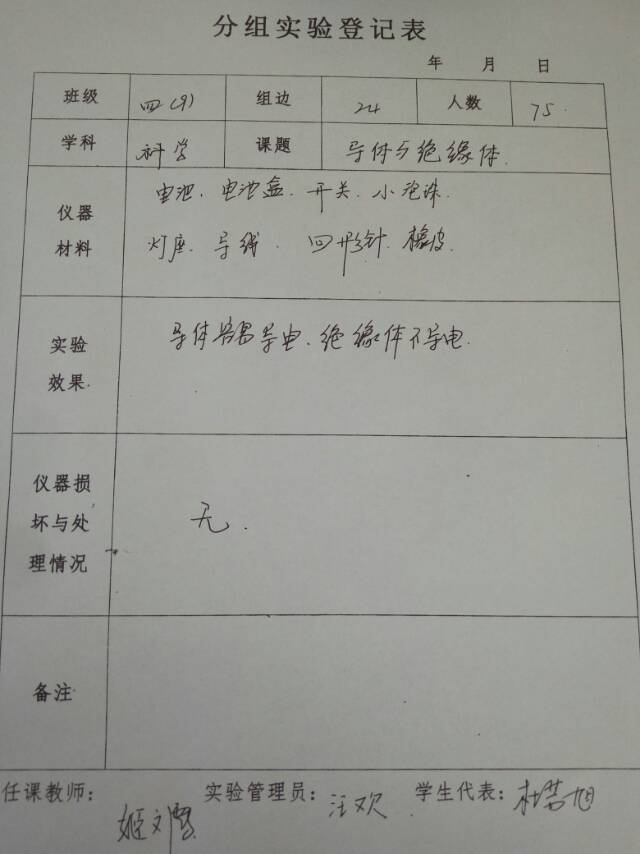 分组实验登记表
年 月 日
班级 四(9) 组边 24 人数 75
学科 科学 课题 导体与绝缘体.
仪器材料 电池. 电池盒. 开关. 小泡珠.
灯座. 导线. 回形针. 橡皮.
实验效果. 导体容易导电. 绝缘体不导电.
仪器损
坏与处 无.
理情况
备注
任课教师: 姬文 实验管理员: 汪欢 学生代表: 杜 旭